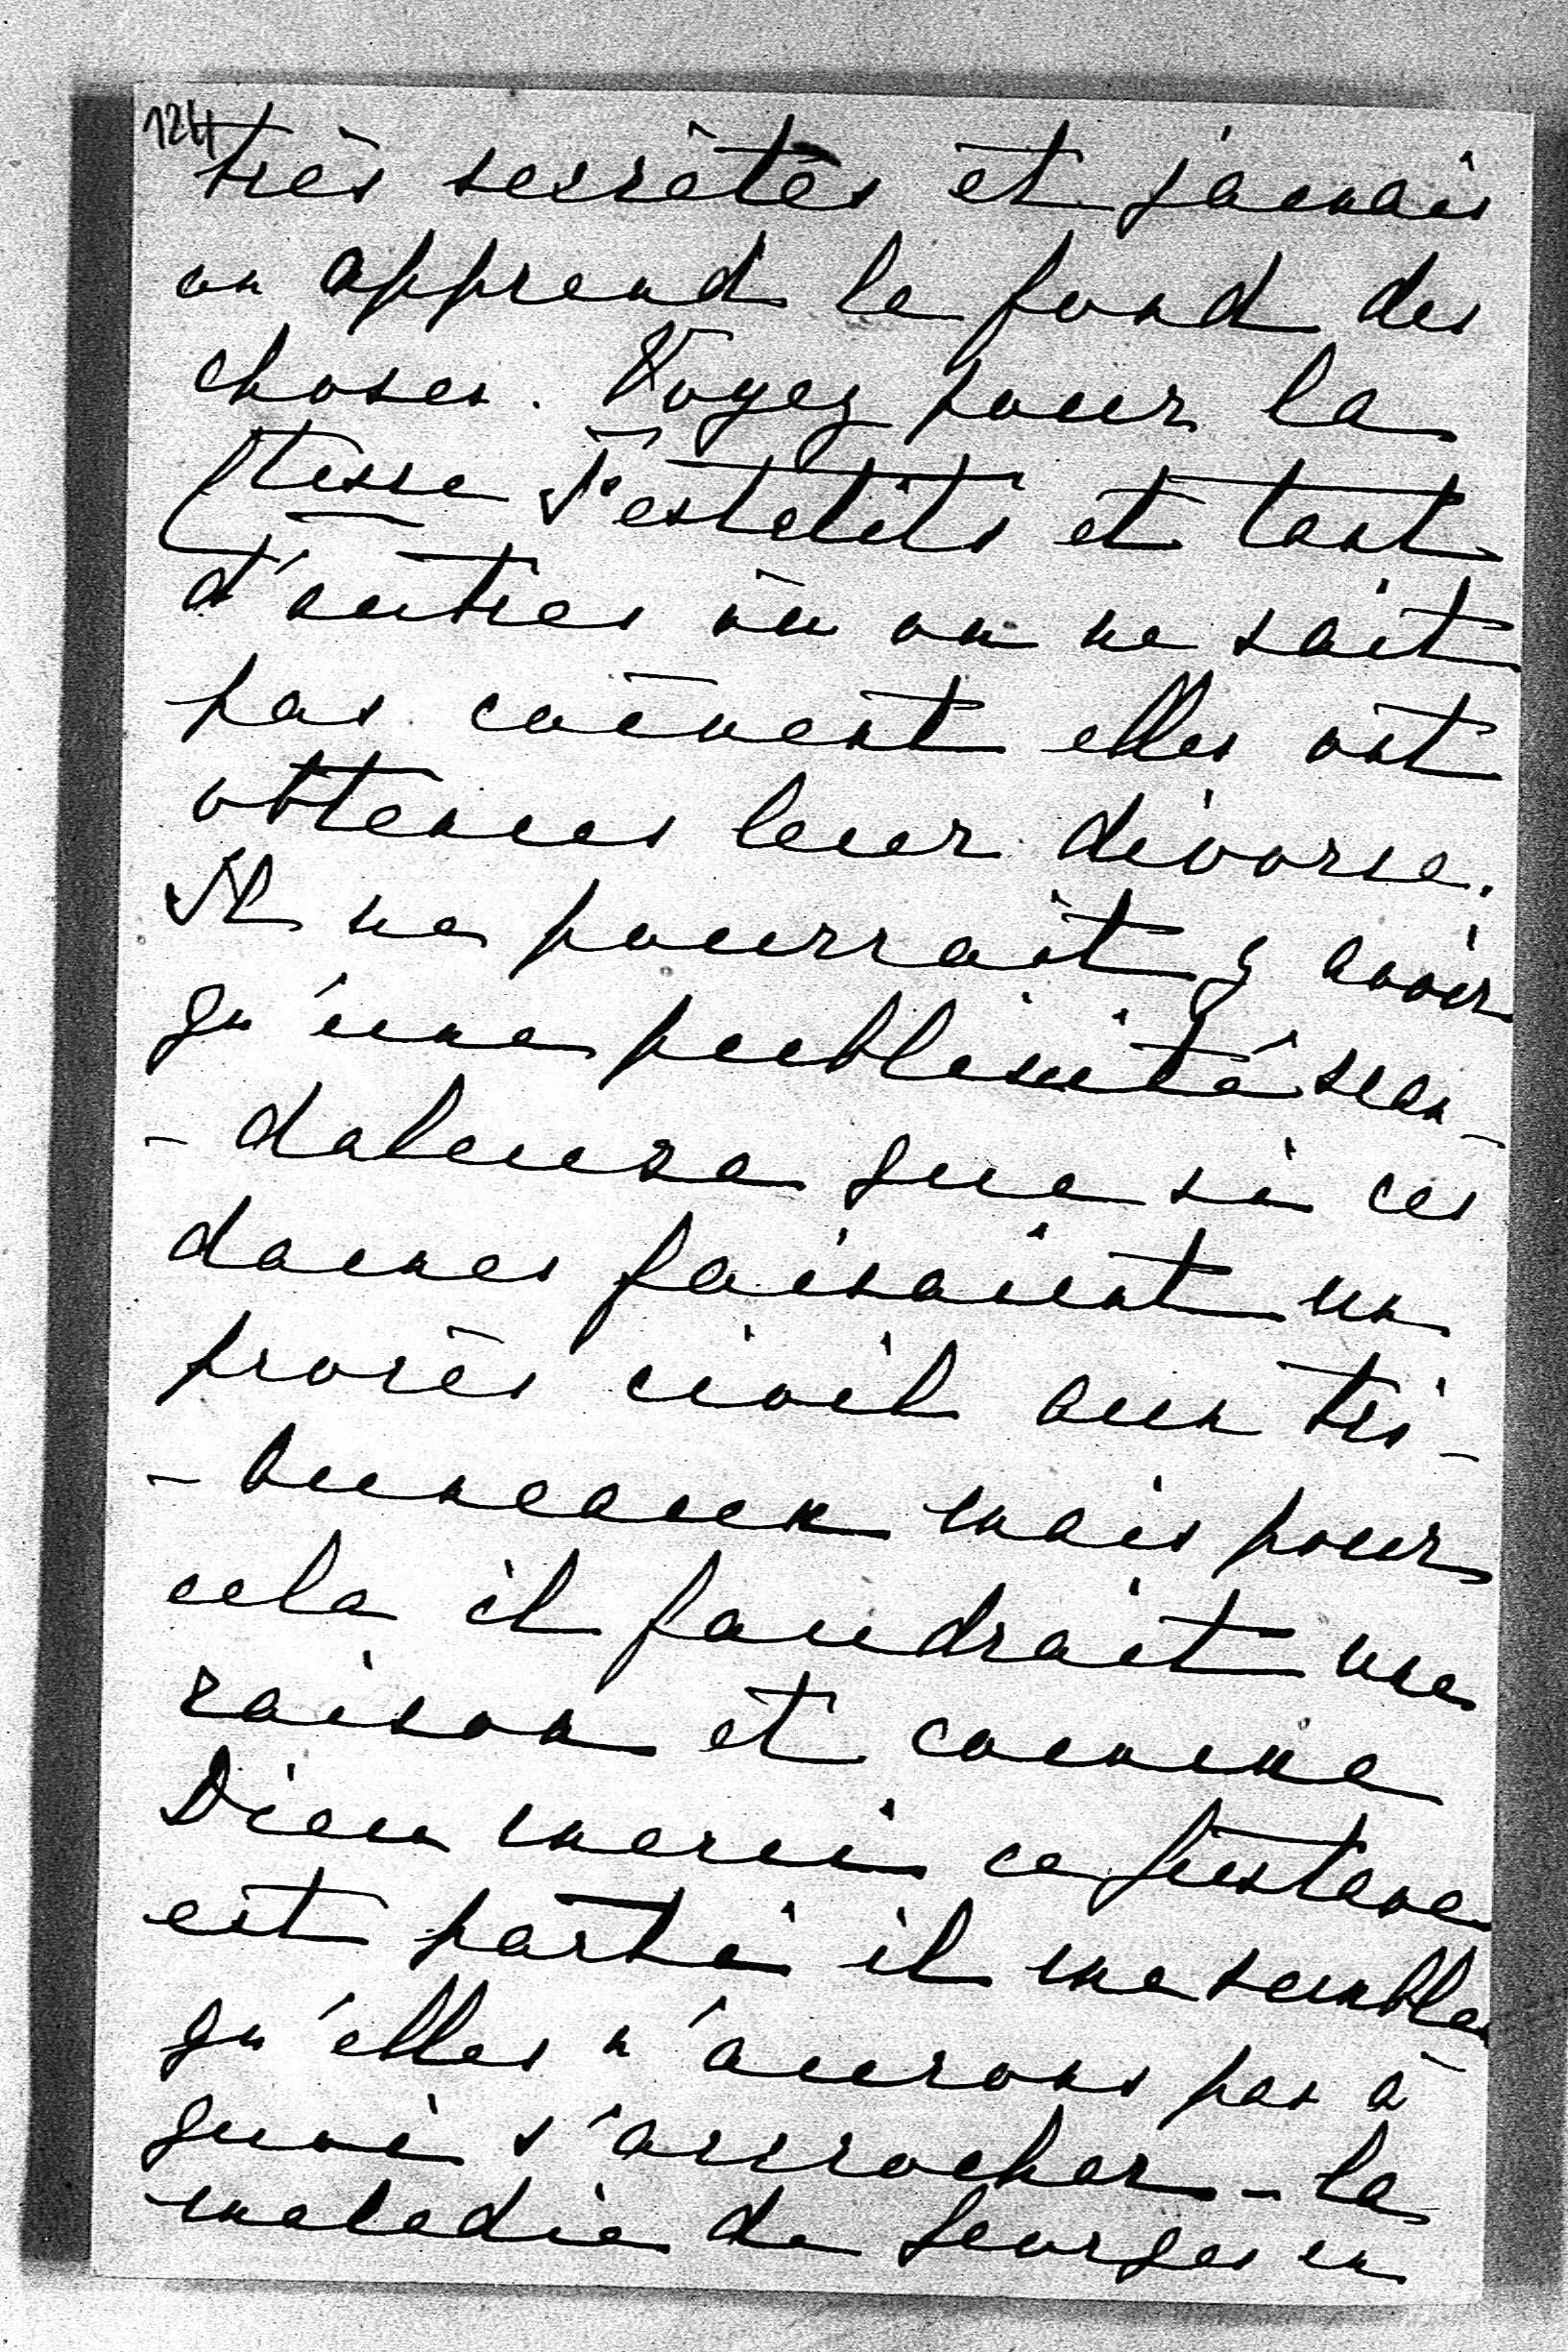 124
très secrètes et jamais
on apprend le fond des
choses. Voyez pour la
Ctesse Festetits et tant
d'autres où on ne sait
pas coment elles ont
obtenues leur divorse.
Il ne pourrait y avoir
qu'une publicité scan-
-daleuse que si ces
dames faisaient un
procès civil aux tri-
-buneaux mais pour
cela il faudrait une
raison et comme
Dieu merci ce Gustave
est parti il me semble
qu'elles n'aurons pas à
quoi s'accrocher - la
maladie de Georges en